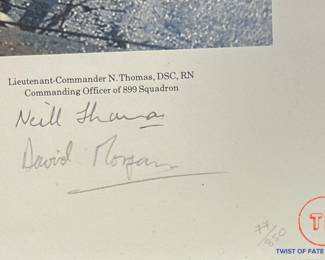 Lieutenant-Commander N. Thomas, DSC, RN
Commanding Officer of 899 Squadron
Neill Thomas
David Morgan
77/850
TWIST OF FATE